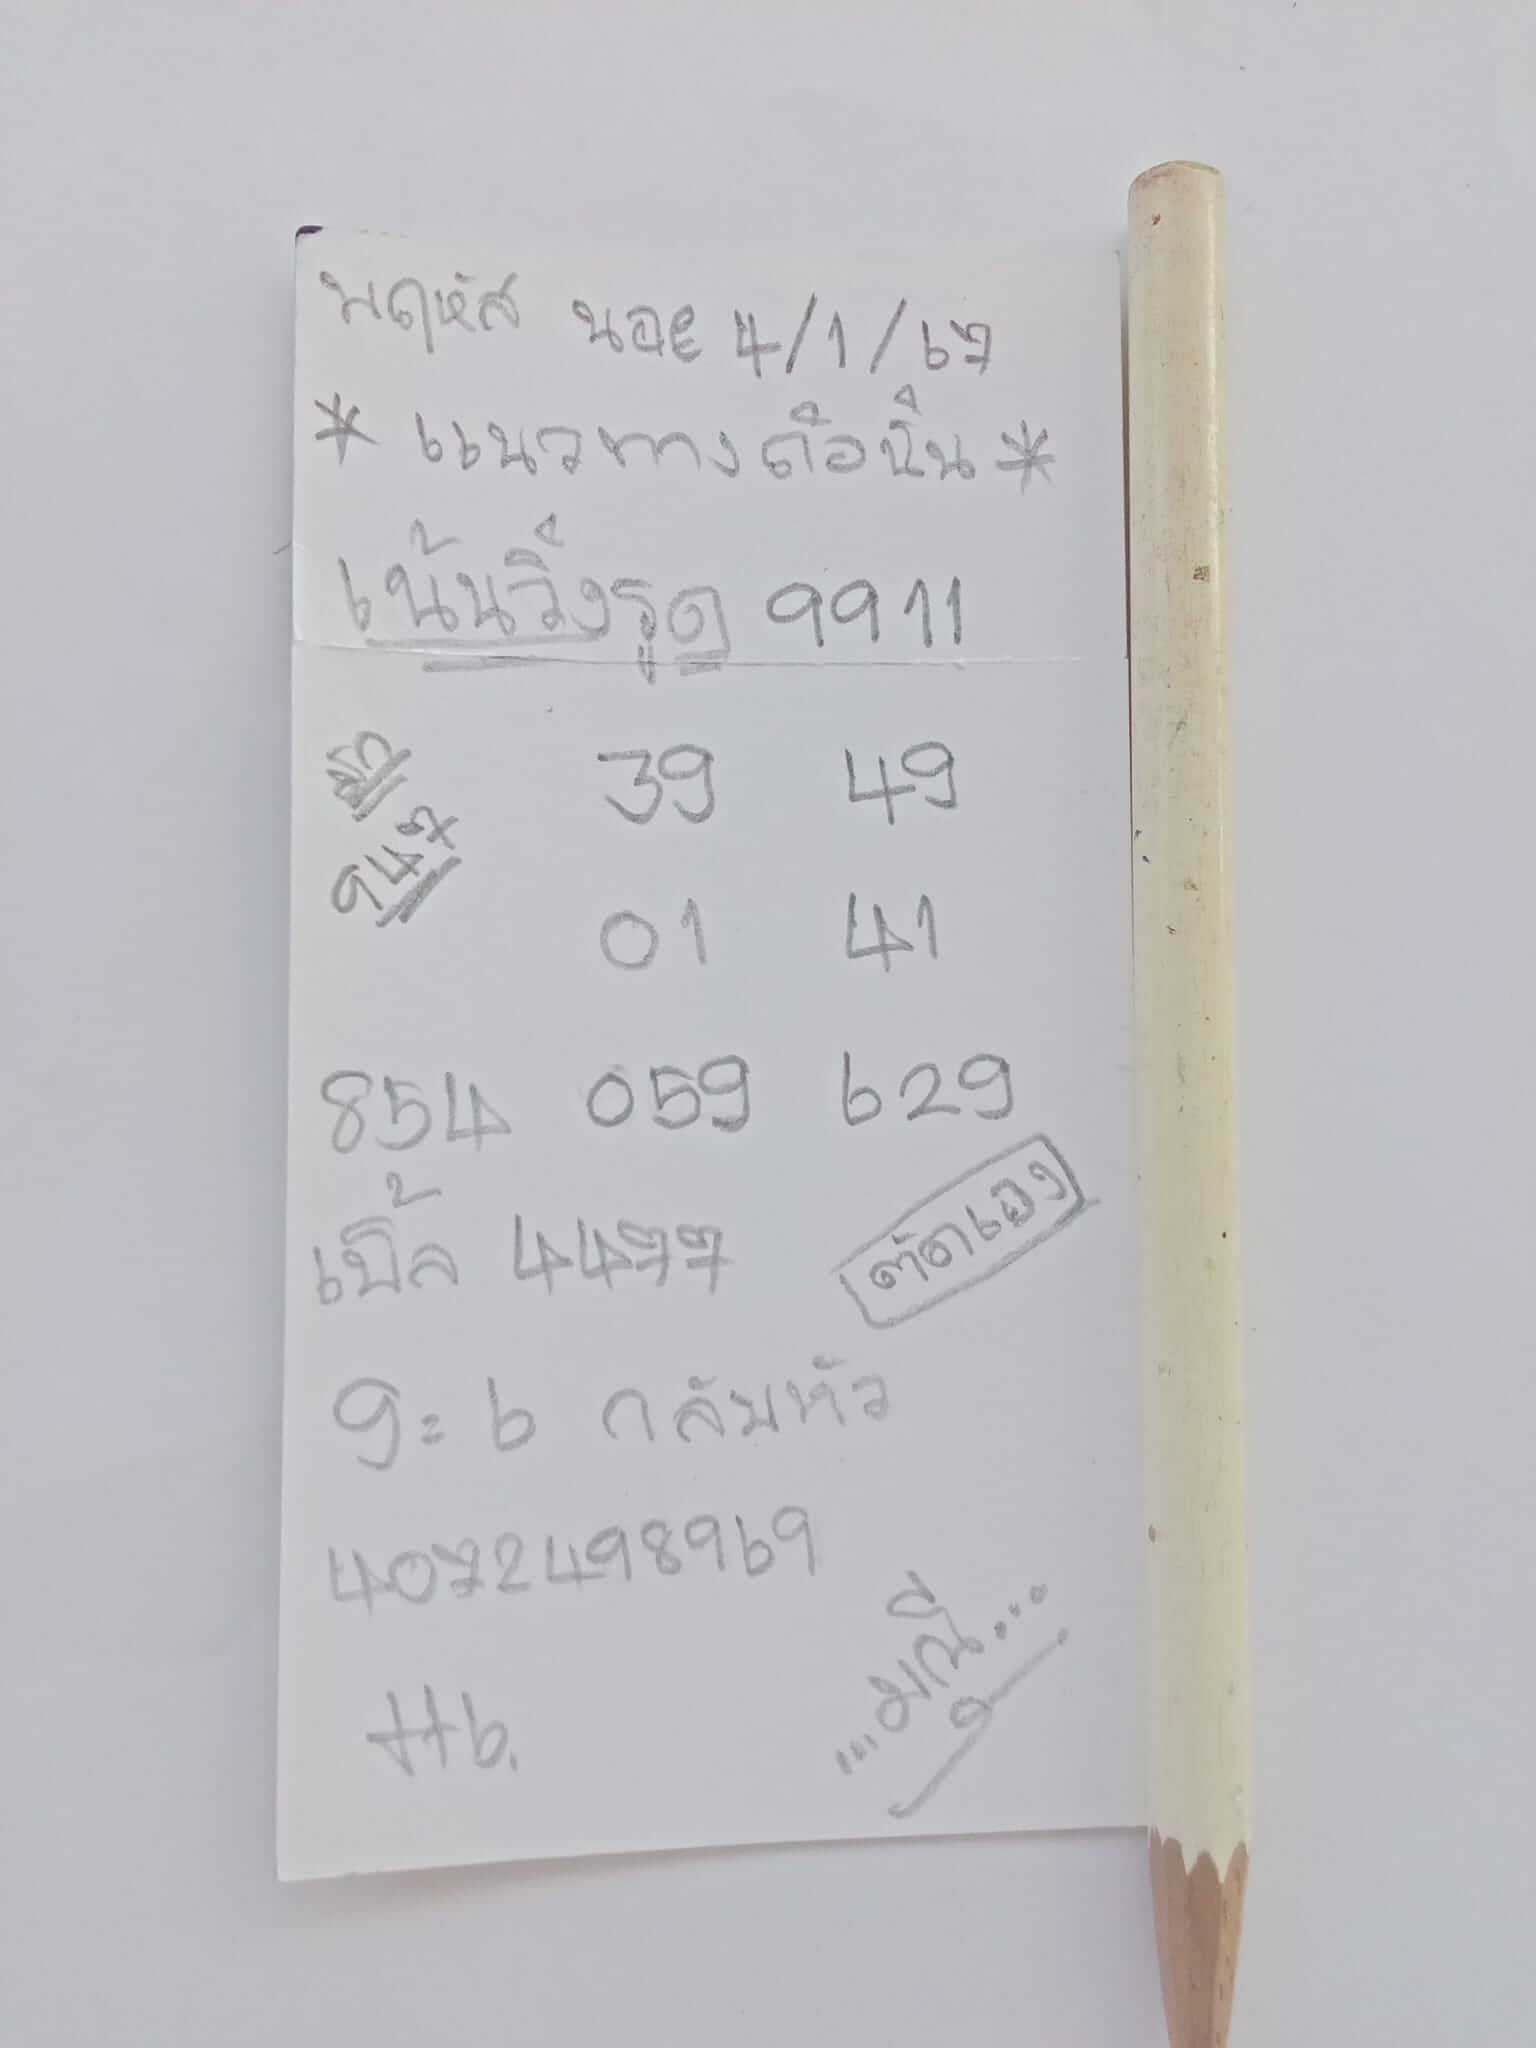 พฤหัส นอย 4/1/67
* แนวทางถือหุ้น *
เน้นวิ่งรูด 9911
39 49
947
01 41
854 059 629
เบิ้ล 4477
ตัดเอง
9=6 กลับหัว
4072498969
...มณี...